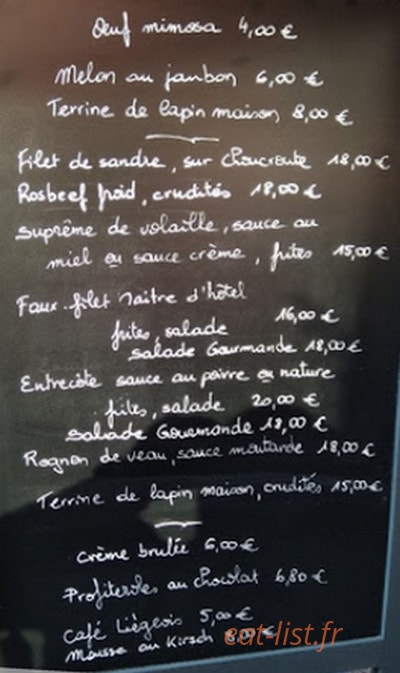 Oeuf mimosa 4,00 €
Melon au jambon 6,00 €
Terrine de lapin maison 8,00 €
Filet de sandre, sur Choucroute 18,00 €
Rosbeef froid, crudités 18,00 €
Suprême de volaille, sauce au
miel ou sauce crème, frites 15,00 €
Faux-filet Maitre d'hôtel
frites, salade 16,00 €
Salade Gourmande 18,00 €
Entrecôte sauce au poivre ou nature
frites, salade 20,00 €
Salade Gourmande 18,00 €
Rognon de veau, sauce moutarde 18,00 €
Terrine de lapin maison, crudités 15,00 €
Crème brulée 6,00 €
Profiteroles au Chocolat 6,80 €
Café Liègeois 5,00 €
Mousse au Kirsch 8,00 €
eat-list.fr